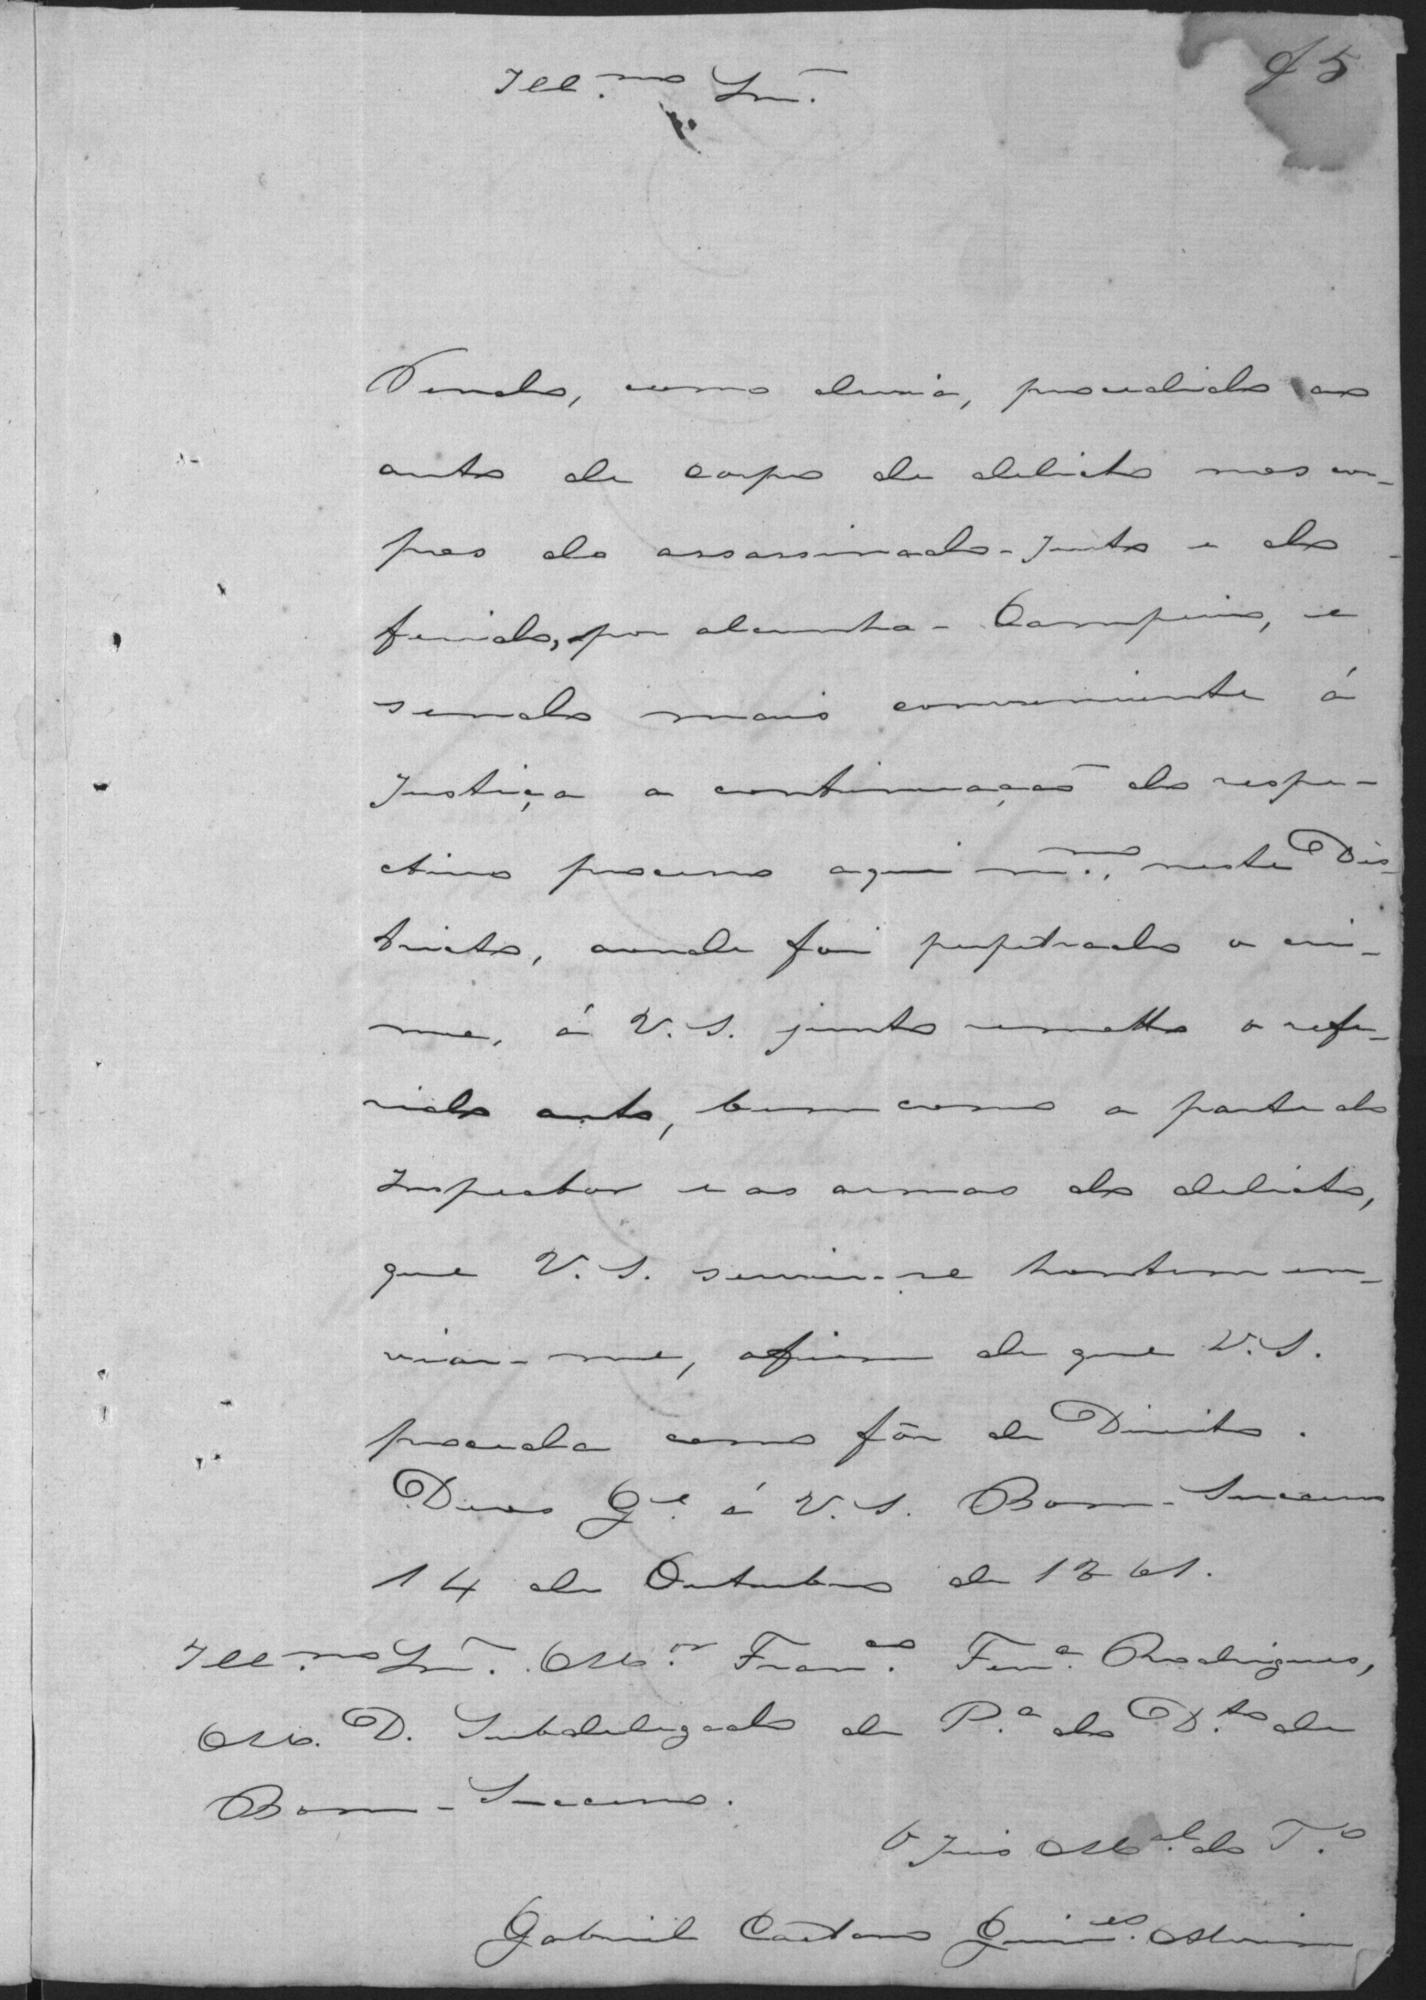 f 5
Ill.mo Sñr.
Tendo, como devia, procedido ao
auto de corpo de delicto nos cor-
pos do assassinado-Justo e do
ferido, por alcunha-Campeiro, e
sendo mais conveniente á
Justiça a continuação do respe-
ctivo processo aqui m.mo, neste Dis-
tricto, aonde foi perpetrado o cri-
me, á V.S. junto remetto o refe-
rido auto, bem como a parte do
Inspector e as armas do delicto,
que V.S. servio-se hontem en-
viar-me, afim de que V.S.
proceda como fôr de Direito.
Deos G.e á V.S. Bom-Successo
14 de Outubro de 1861.
Ill.mo Sñr. M.or Fran.co Ferr.a Rodrigues,
M. D. Subdelegado de P.a do D.to de
Bom-Successo.
O Juis M.al do T.o
Gabriel Caetano Guim.es